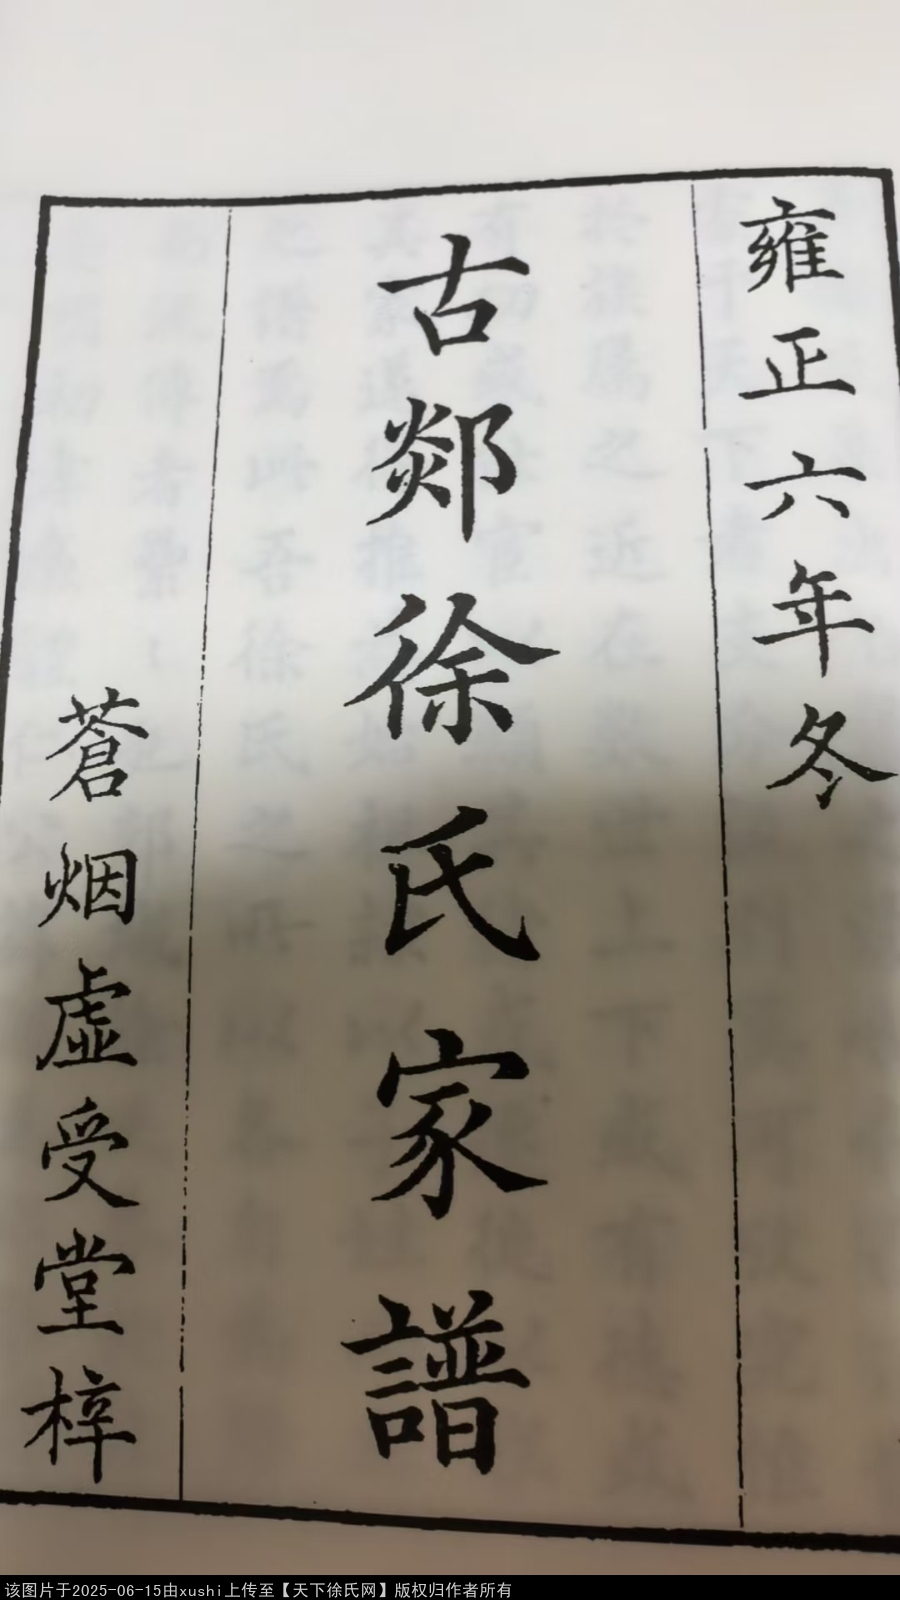 雍正六年冬
古郯徐氏家譜
蒼烟虛受堂梓
该图片于2025-06-15由xushi上传至【天下徐氏网】版权归作者所有